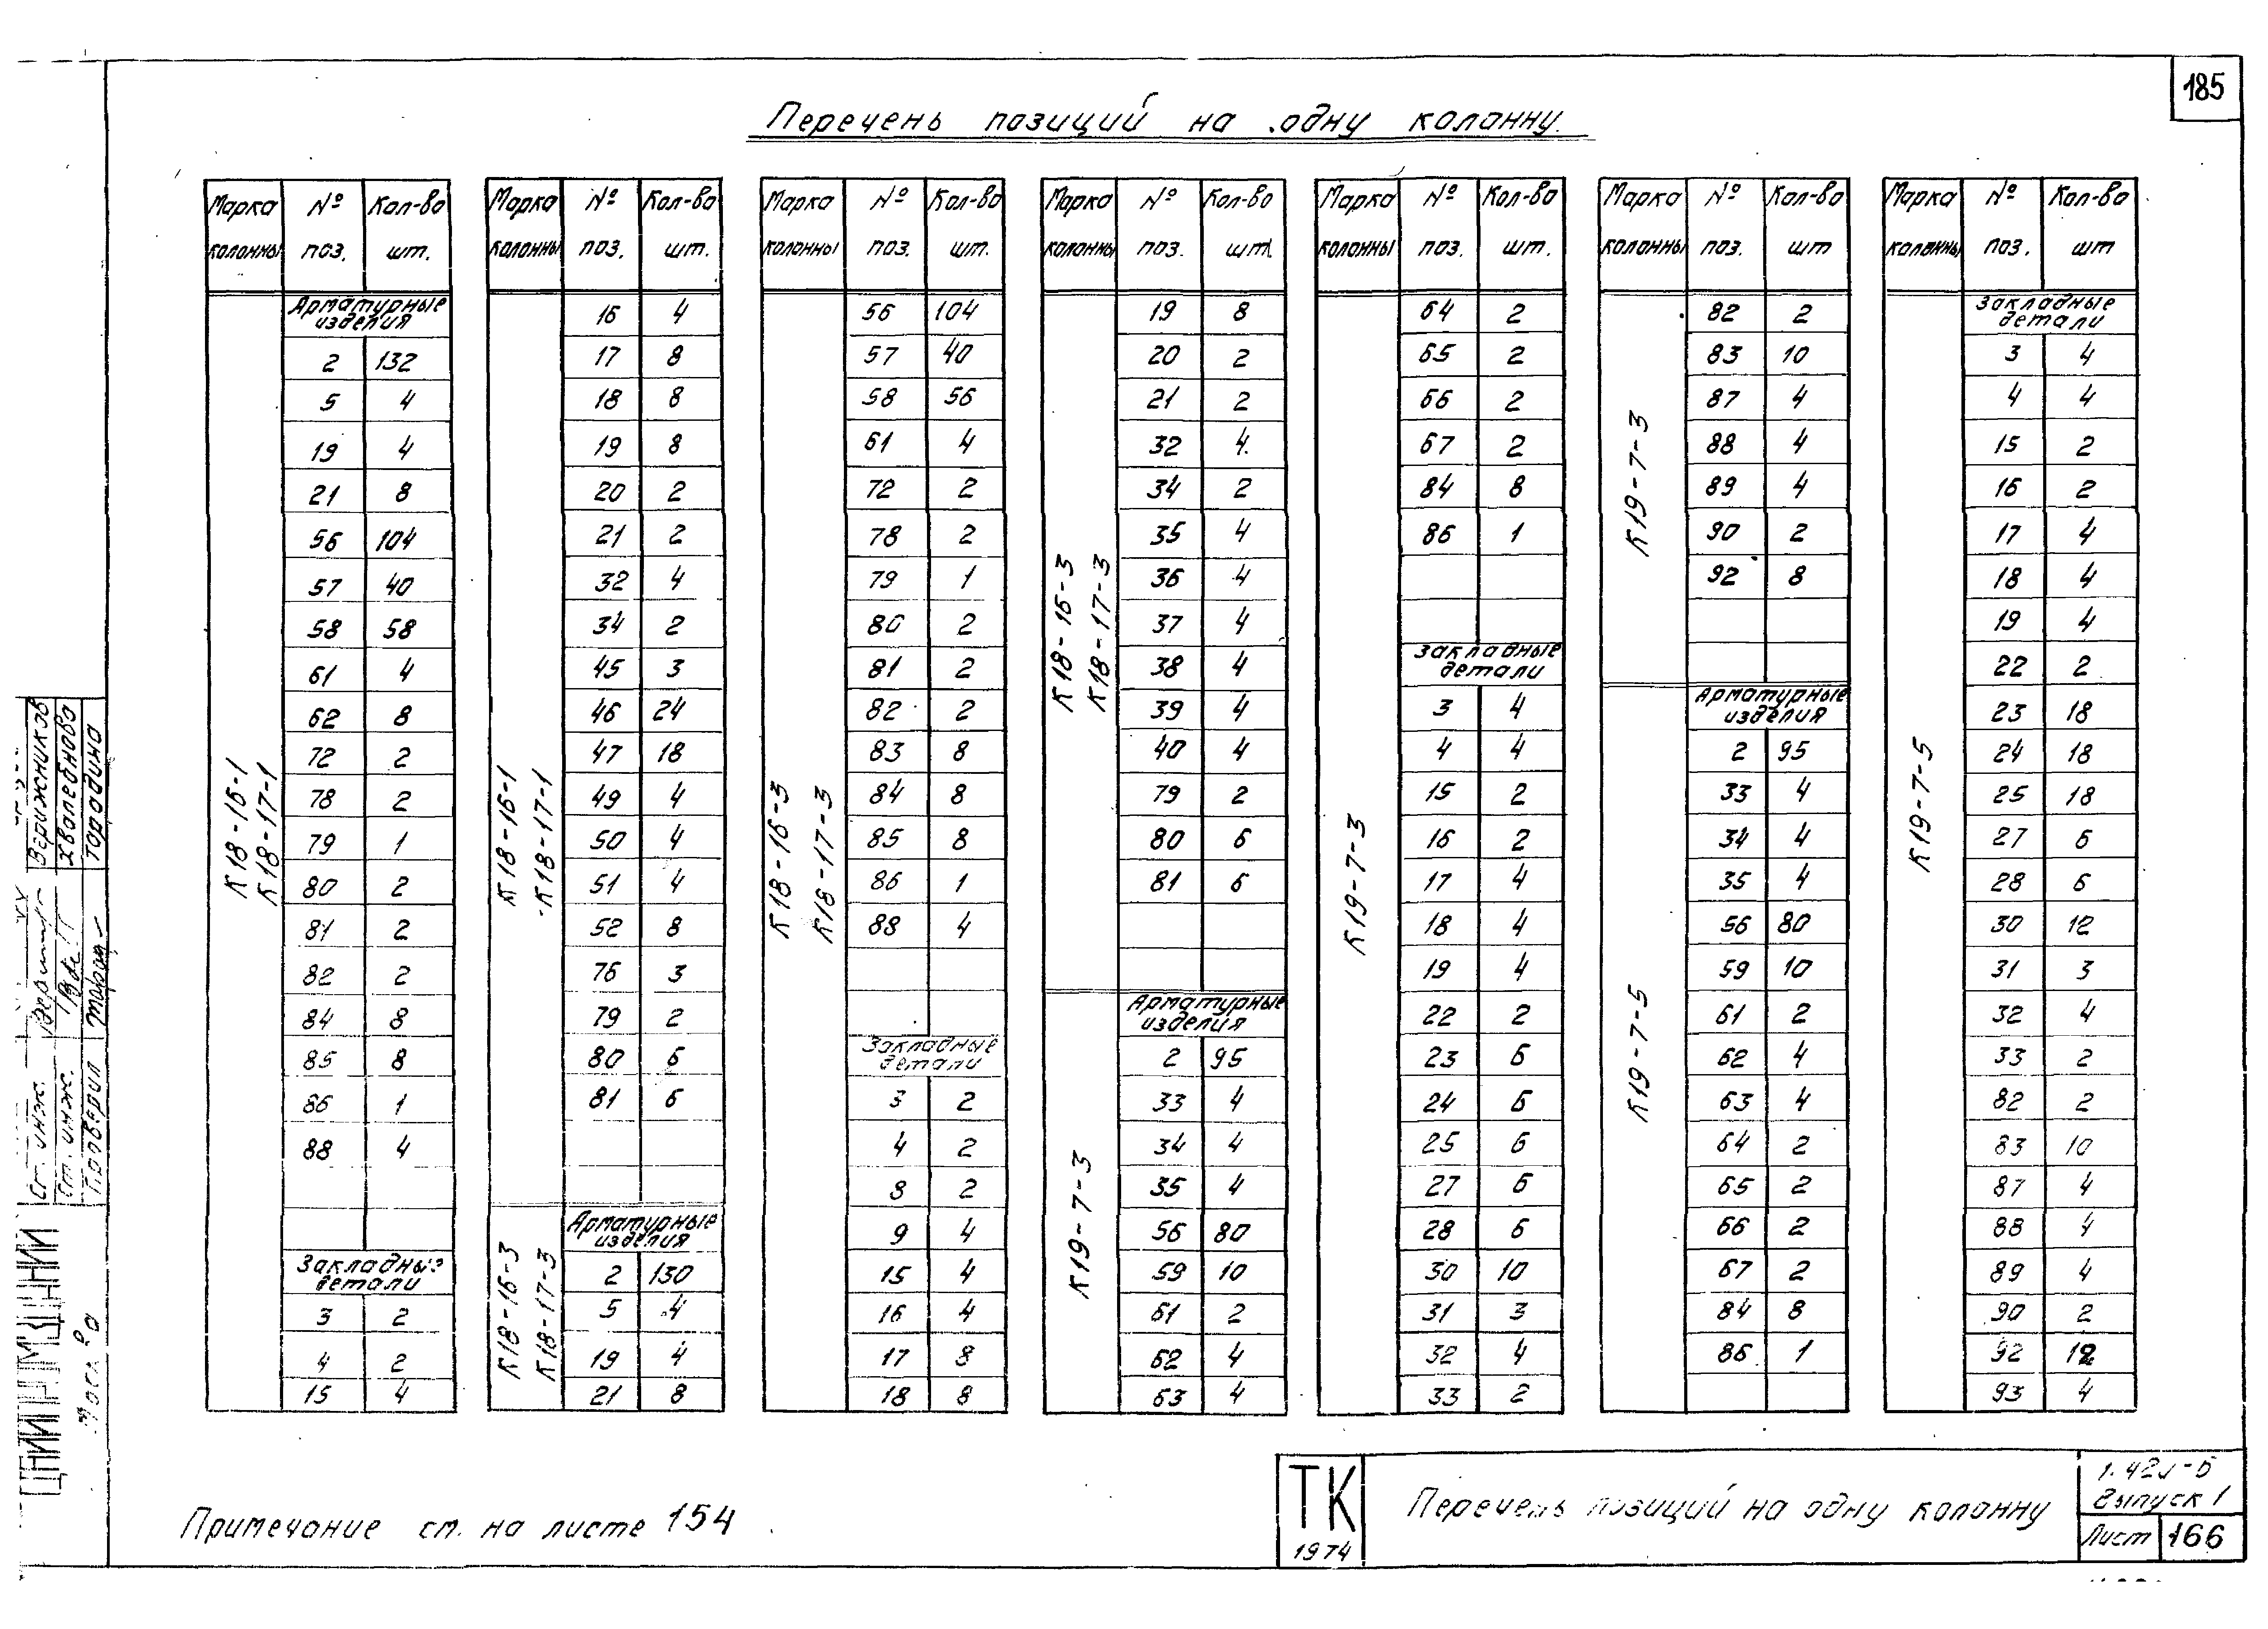 185
Перечень позиций на одну колонну.
Марка колонны № поз. Кол-во шт.
К18-16-1
К18-17-1
Арматурные изделия
2 132
5 4
19 4
21 8
56 104
57 40
58 58
61 4
62 8
72 2
78 2
79 1
80 2
81 2
82 2
84 8
85 8
86 1
88 4
Закладные детали
3 2
4 2
15 4
Марка колонны № поз. Кол-во шт.
К18-16-1
К18-17-1
16 4
17 8
18 8
19 8
20 2
21 2
32 4
34 2
45 3
46 24
47 18
49 4
50 4
51 4
52 8
76 3
79 2
80 6
81 6
К18-16-3
К18-17-3
Арматурные изделия
2 130
5 4
19 4
21 8
Марка колонны № поз. Кол-во шт.
К18-16-3
К18-17-3
56 104
57 40
58 56
61 4
72 2
78 2
79 1
80 2
81 2
82 2
83 8
84 8
85 8
86 1
88 4
Закладные детали
3 2
4 2
8 2
9 4
15 4
16 4
17 8
18 8
Марка колонны № поз. Кол-во шт.
К18-16-3
К18-17-3
19 8
20 2
21 2
32 4
34 2
35 4
36 4
37 4
38 4
39 4
40 4
79 2
80 6
81 6
К19-7-3
Арматурные изделия
2 95
33 4
34 4
35 4
56 80
59 10
61 2
62 4
63 4
Марка колонны № поз. Кол-во шт.
К19-7-3
64 2
65 2
66 2
67 2
84 8
86 1
Закладные детали
3 4
4 4
15 2
16 2
17 4
18 4
19 4
22 2
23 6
24 6
25 6
27 6
28 6
30 10
31 3
32 4
33 2
Марка колонны № поз. Кол-во шт
К19-7-3
82 2
83 10
87 4
88 4
89 4
90 2
92 8
К19-7-5
Арматурные изделия
2 95
33 4
34 4
35 4
56 80
59 10
61 2
62 4
63 4
64 2
65 2
66 2
67 2
84 8
86 1
Марка колонны № поз. Кол-во шт
К19-7-5
Закладные детали
3 4
4 4
15 2
16 2
17 4
18 4
19 4
22 2
23 18
24 18
25 18
27 6
28 6
30 12
31 3
32 4
33 2
82 2
83 10
87 4
88 4
89 4
90 2
92 12
93 4
Примечание см. на листе 154
ТК
1974
Перечень позиций на одну колонну
Выпуск 1
Лист 166
Ст. инж. Верижников
Ст. инж. Хвалебнова
Проверил Тородина